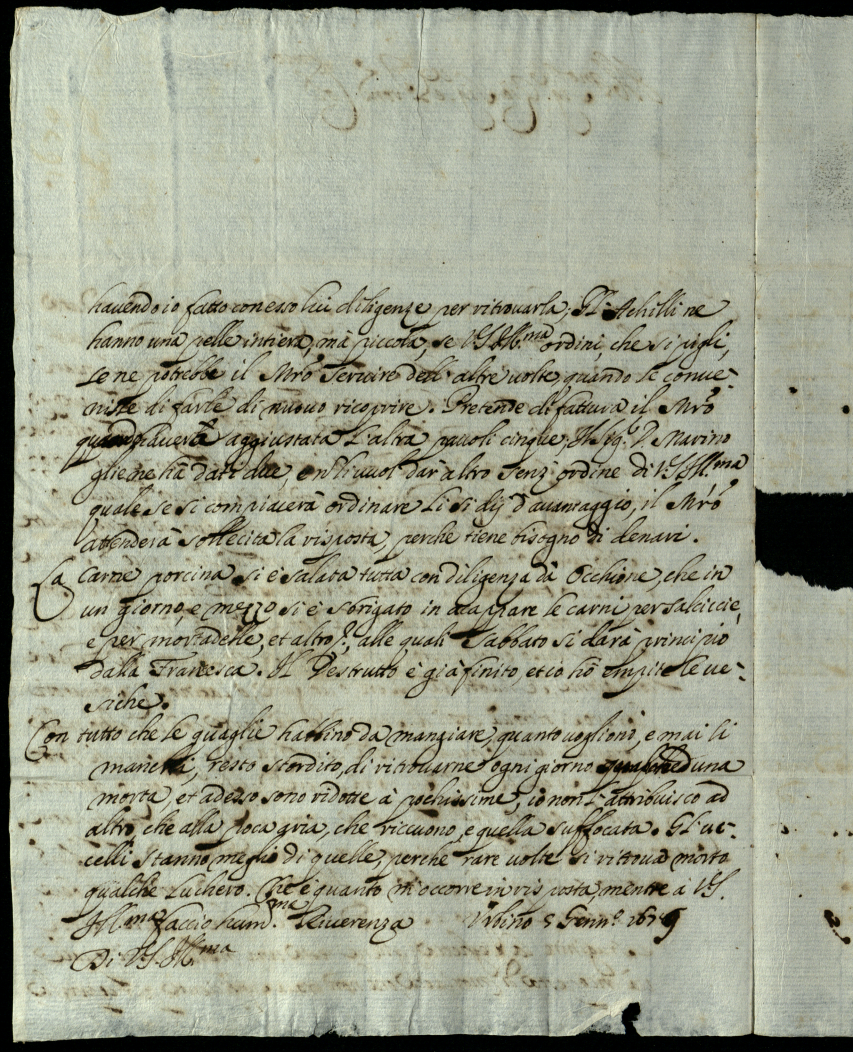 havendo io fatto con esso lui diligenze per ritrovarla; Gl'Achilli ne
hanno una pelle intiera, mà piccola, se VS Ill.ma ordini, che si pigli,
se ne potrebbe il Mrõ servire dell'altre volte, quando le conve-
nisse di farle di nuovo ricoprire. Pretende di fattura il Mrõ
aggiustata l'altra pauoli cinque, Il Sig.r D. Marino
gliene hà dati due, e nõ li vuol dar altro senz'ordine di VS Ill.ma
quale se si compiacerà ordinare li si dij d'avantaggio, il Mrõ
attenderà sollecita la risposta, perche tiene bisogno di denari.
La carne porcina si è salata tutta con diligenza dà Occhione, che in
un giorno, e mezzo si è sbrigato in accappare le carni per salciccie,
e per mortadelle, et altro, alle quali Sabbato si darà principio
dalla Francesca. Il Destrutto è già finito, et io hò empite le ve-
siche.
Con tutto che le quaglie habbino da mangiare quanto voglioni, e mai li
manchi, resto stordito, di ritrovarne ogni giorno qualched'una
morta, et adesso sono ridotte à pochissime, io non l'attribuisco ad
altro, che alla poca aria, che riceuono, e quella suffocata. Gl'uc-
celli stanno meglio di quelle, perche rare volte si ritrova morto
qualche Luchero. Che è quanto m'occorre in risposta, mentre à VS.
Ill.ma faccio hum.ma Riverenza Urbino 5 Genn.o 1679
Di VS. Ill.ma